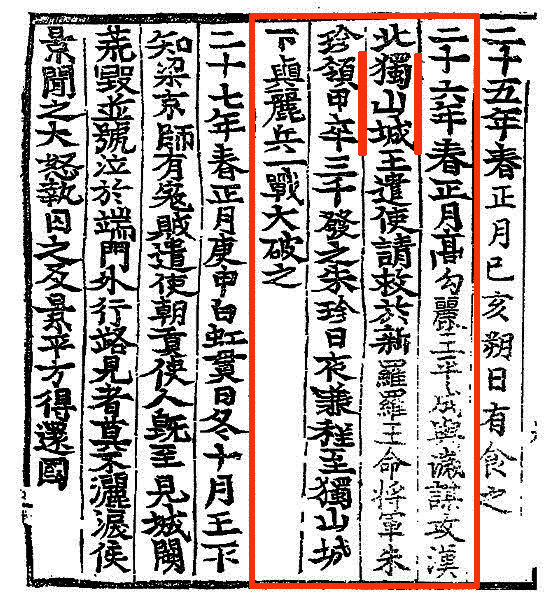 二十五年春正月己亥朔日有食之
二十六年春正月高勾麗王平成與濊謀攻漢
北獨山城王遣使請救於新羅羅王命將軍朱
珍領甲卒三千發之朱珍日夜兼程至獨山城
下與麗兵一戰大破之
二十七年春正月庚申白虹貫日冬十月王不
知梁京師有寇賊遣使朝貢使人旣至見城闕
荒毀並號泣於端門外行路見者莫不灑淚侯
景聞之大怒執囚之及景平方得還國